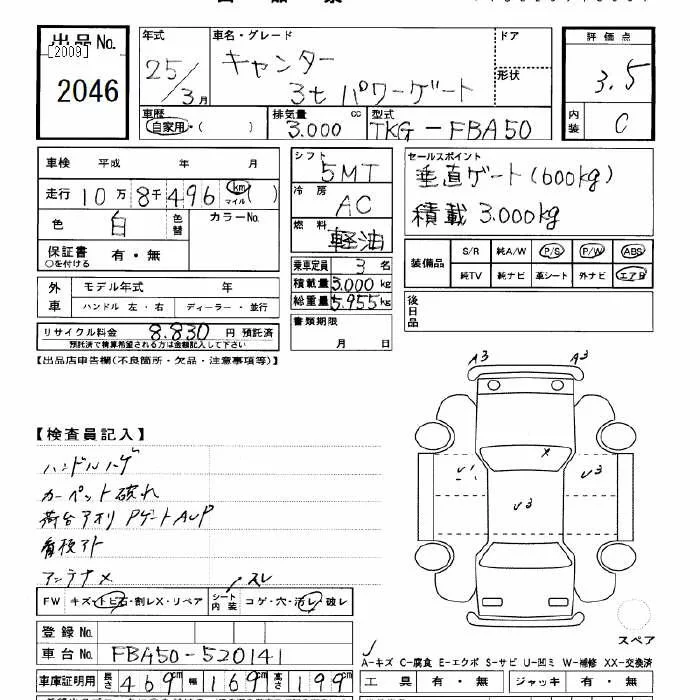 出品No.
[2009]
2046
年式
25/3月
車名・グレード
キャンター
3t パワーゲート
ドア
形状
評価点
3.5
内装
C
車歴
自家用・( )
排気量
3.000 cc
型式
TKG-FBA50
車検 平成 年 月
走行 10万8千496 km マイル ( )
色 白 色替
カラーNo.
保証書 有・無
○を付ける
外車
モデル年式 年
ハンドル 左・右
ディーラー・並行
リサイクル料金 8.830 円 預託済
預託済で積算希望される方は金額記入して下さい
シフト
5MT
冷房
AC
燃料
軽油
乗車定員 3 名
積載量 3.000 kg
総重量 5.955 kg
書類期限
月 日
セールスポイント
垂直ゲート(600kg)
積載 3.000kg
装備品
S/R 純A/W P/S P/W ABS
純TV 純ナビ 革シート 外ナビ エアB
後日品
【出品店申告欄(不良箇所・欠品・注意事項等)】
A3 A3
【検査員記入】
ハンドルハゲ
カーペット破れ
荷台アオリ PゲートAUP
看板アト
アンテナ×
スレ
FW キズ・トビ石・割レX・リペア
シート内装 コゲ・穴・汚レ・破レ
登録No.
車台No. FBA50-520141
車庫証明用 長さ 469cm 幅 169cm 高さ 199cm
スペア
A-キズ C-腐食 E-エクボ S-サビ U-凹ミ W-補修 XX-交換済
工具 有・無 ジャッキ 有・無